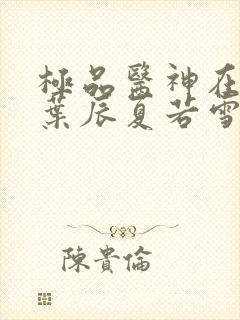 極品醫神在
葉辰夏若雪
陳貴倫